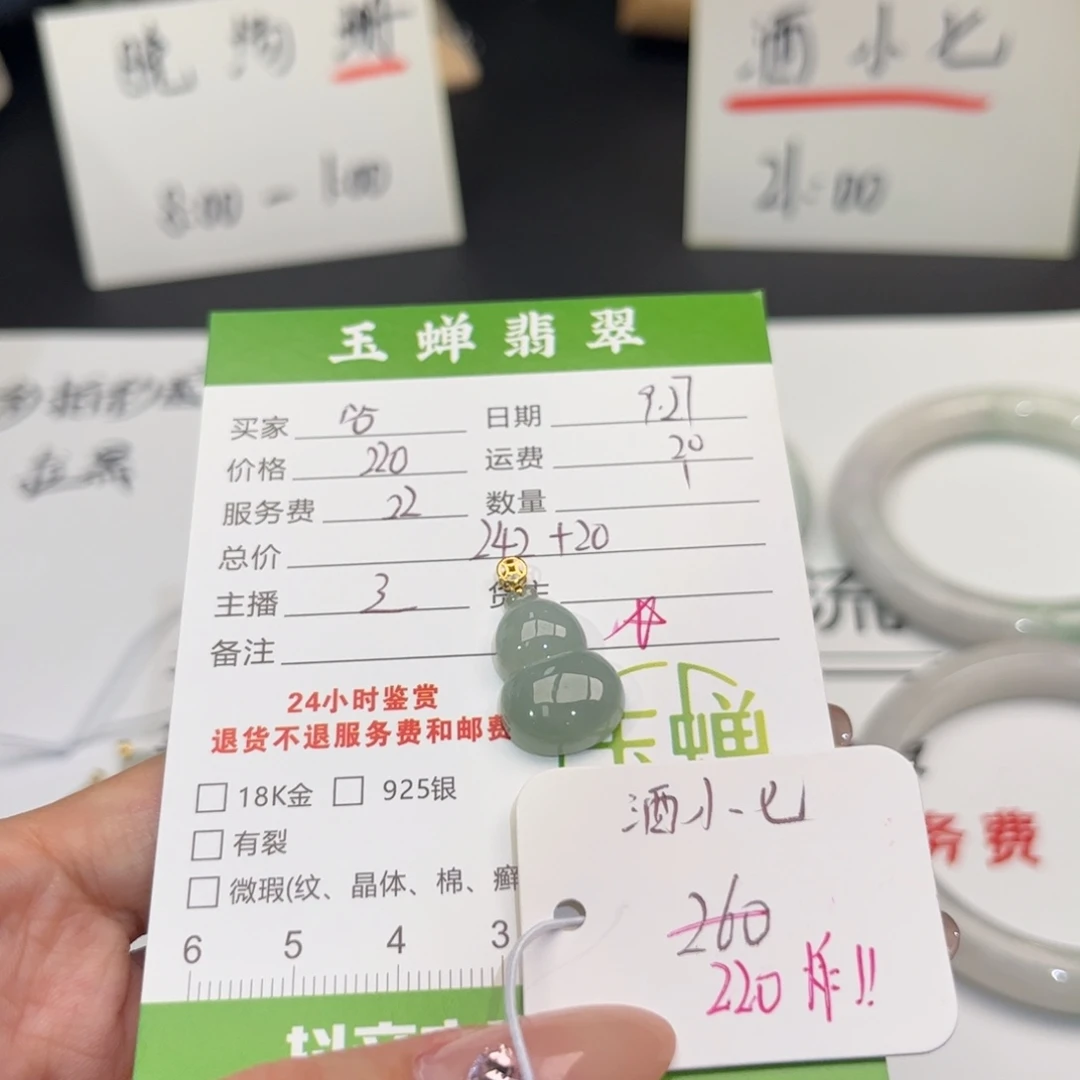 8:00 - 1:00
酒小七
21:00
玉蝉翡翠
买家 日期 9.27
价格 220 运费 20
服务费 22 数量 1
总价 242 + 20
主播 3 货主
备注
24小时鉴赏
退货不退服务费和邮费
18K金 925银
有裂
微瑕(纹、晶体、棉、癣
6 5 4 3
酒小七
260
220 炸!!
流
务费